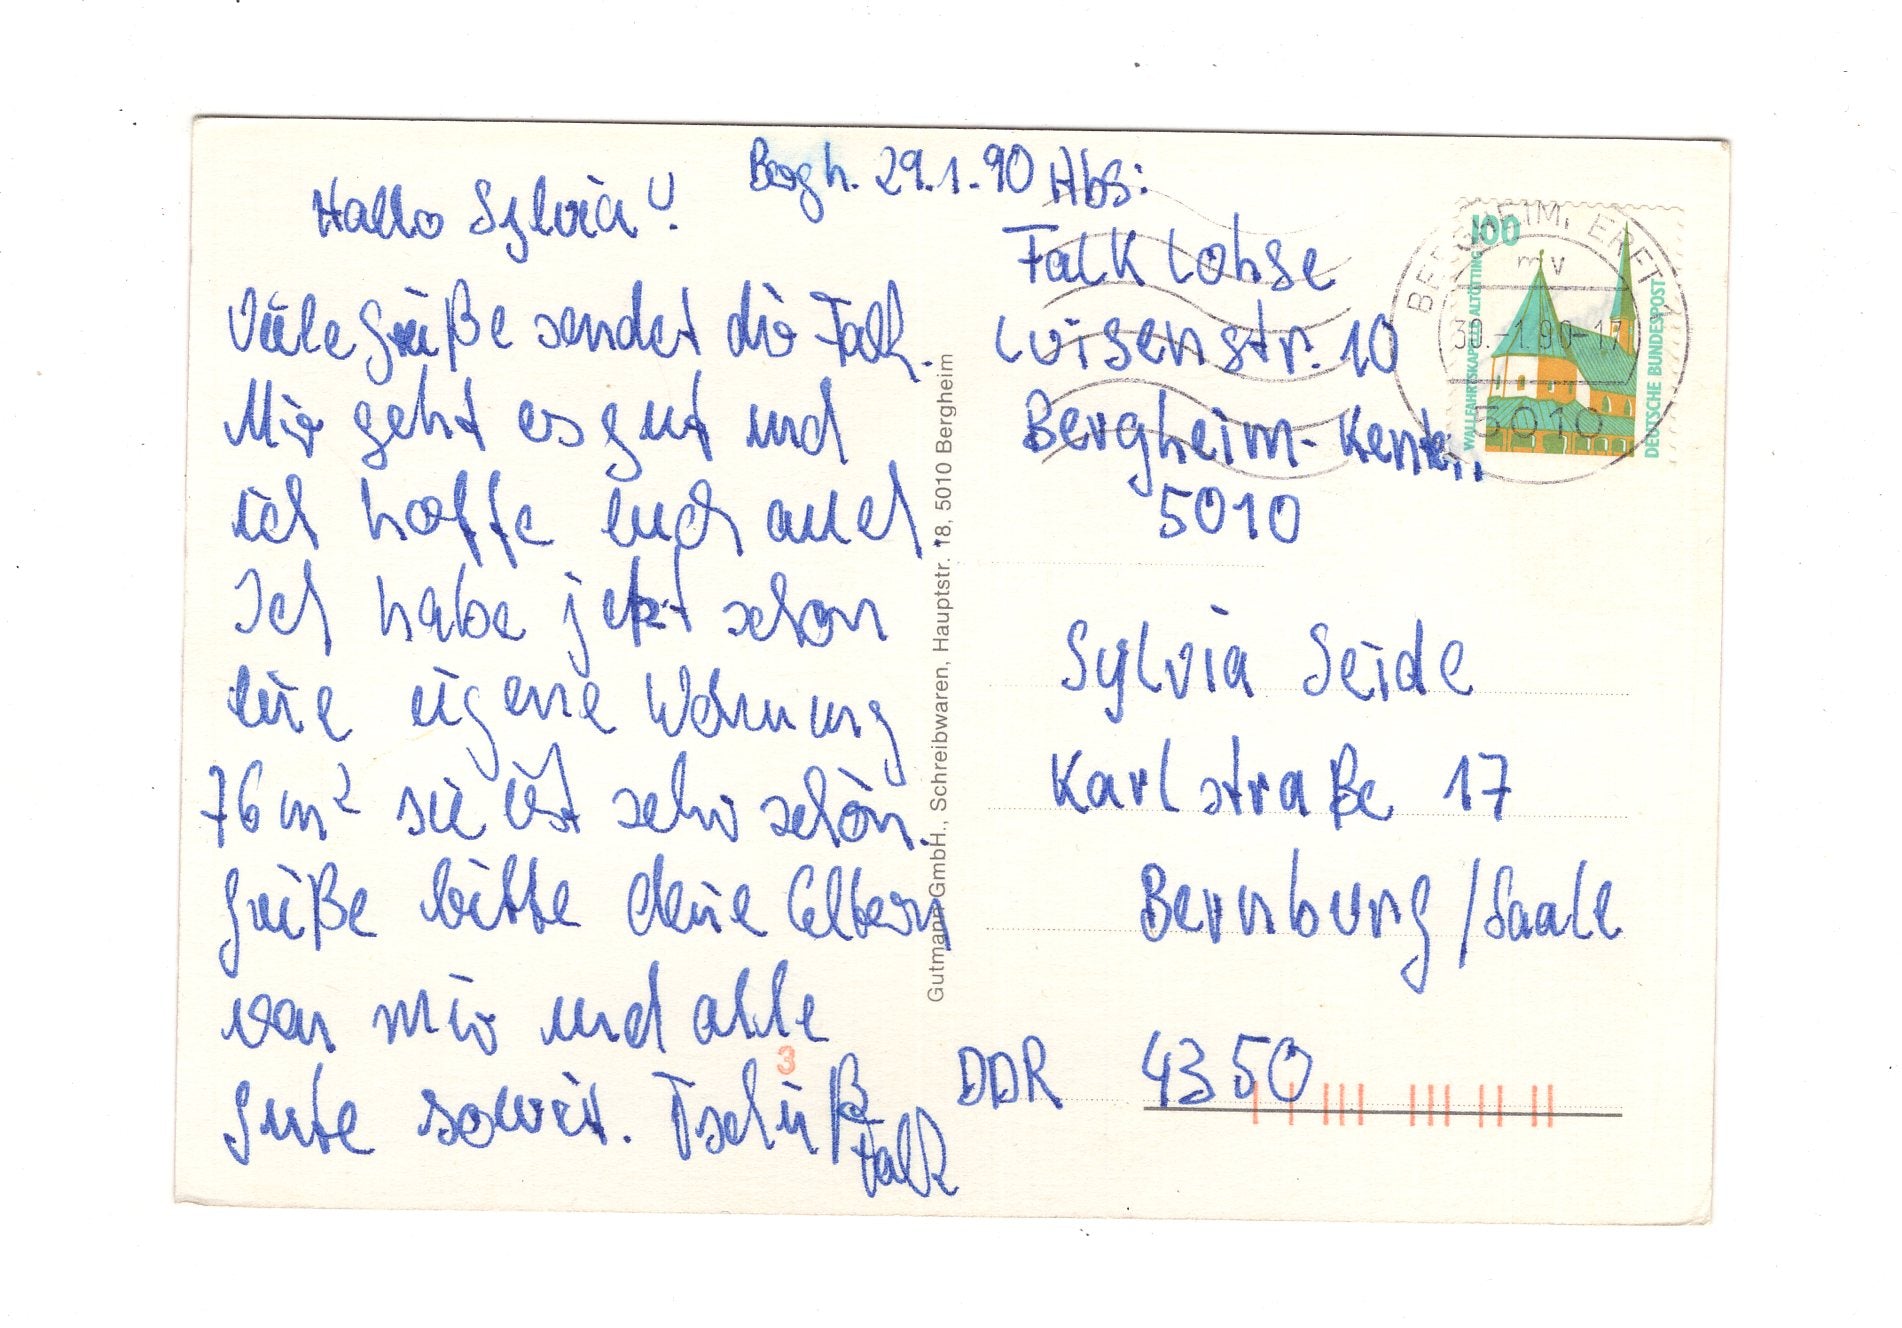 Bergh. 29.1.90
Hallo Sylvia!
Viele Grüße sendet dir Falk.
Mir geht es gut und
ich hoffe euch auch.
Ich habe jetzt schon
eine eigene Wohnung
76 m² sie ist sehr schön.
Grüße bitte deine Eltern
von mir und alle
gute soweit. Tschüß
Falk
Gutmann GmbH., Schreibwaren, Hauptstr. 18, 5010 Bergheim
3
Abs:
Falk Lohse
Luisenstr. 10
Bergheim-Kenten
5010
100
WALLFAHRTSKAPELLE ALTÖTTING
DEUTSCHE BUNDESPOST
BERGHEIM, ERFT 1
mv
30.-1.90-17
5010
Sylvia Seide
Karlstraße 17
Bernburg/Saale
DDR 4350